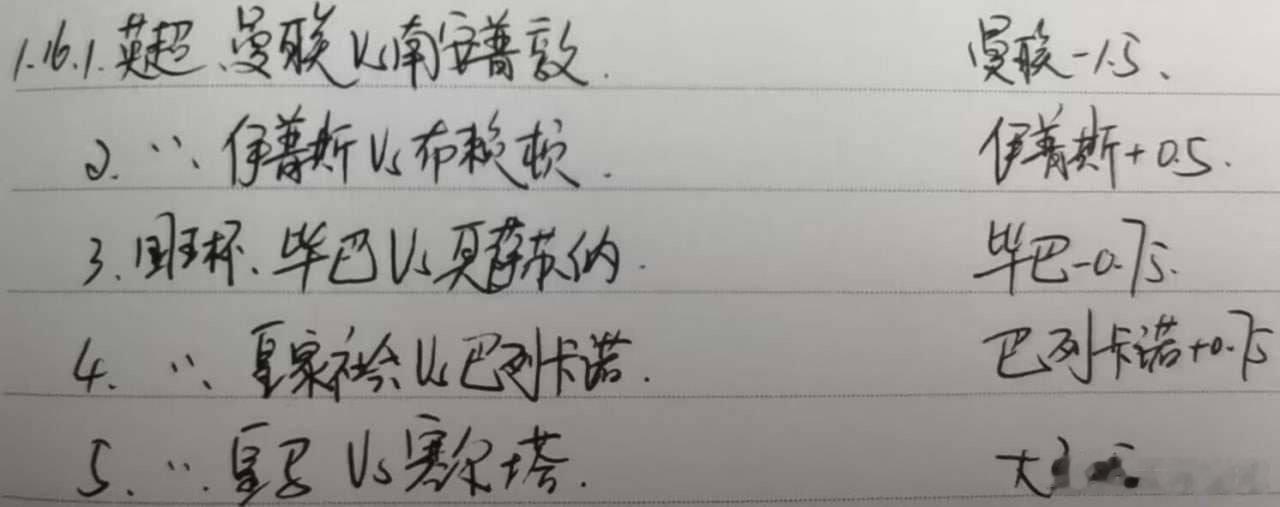 1.16.1.英超.曼联Vs南安普敦. 曼联-1.5、
2. 〃. 伊普斯Vs布赖顿. 伊普斯+0.5.
3.国王杯.毕巴Vs奥萨苏纳. 毕巴-0.75.
4. 〃. 皇家社会Vs巴列卡诺. 巴列卡诺+0.75
5. 〃. 皇马Vs塞尔塔. 大